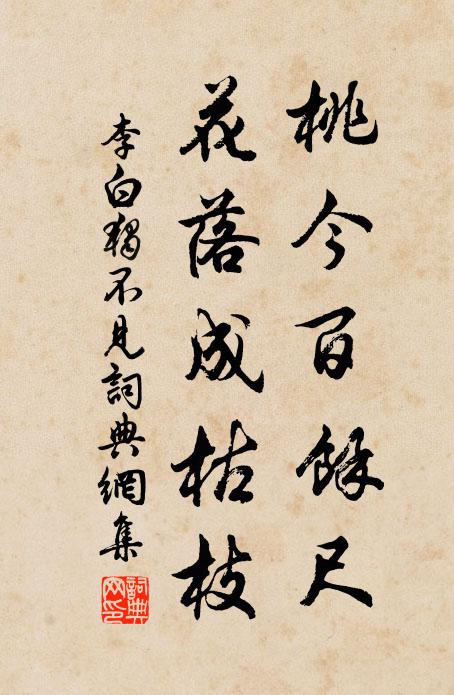 桃今百餘尺
花落成枯枝
李白獨不見詞典網集
詞典網印